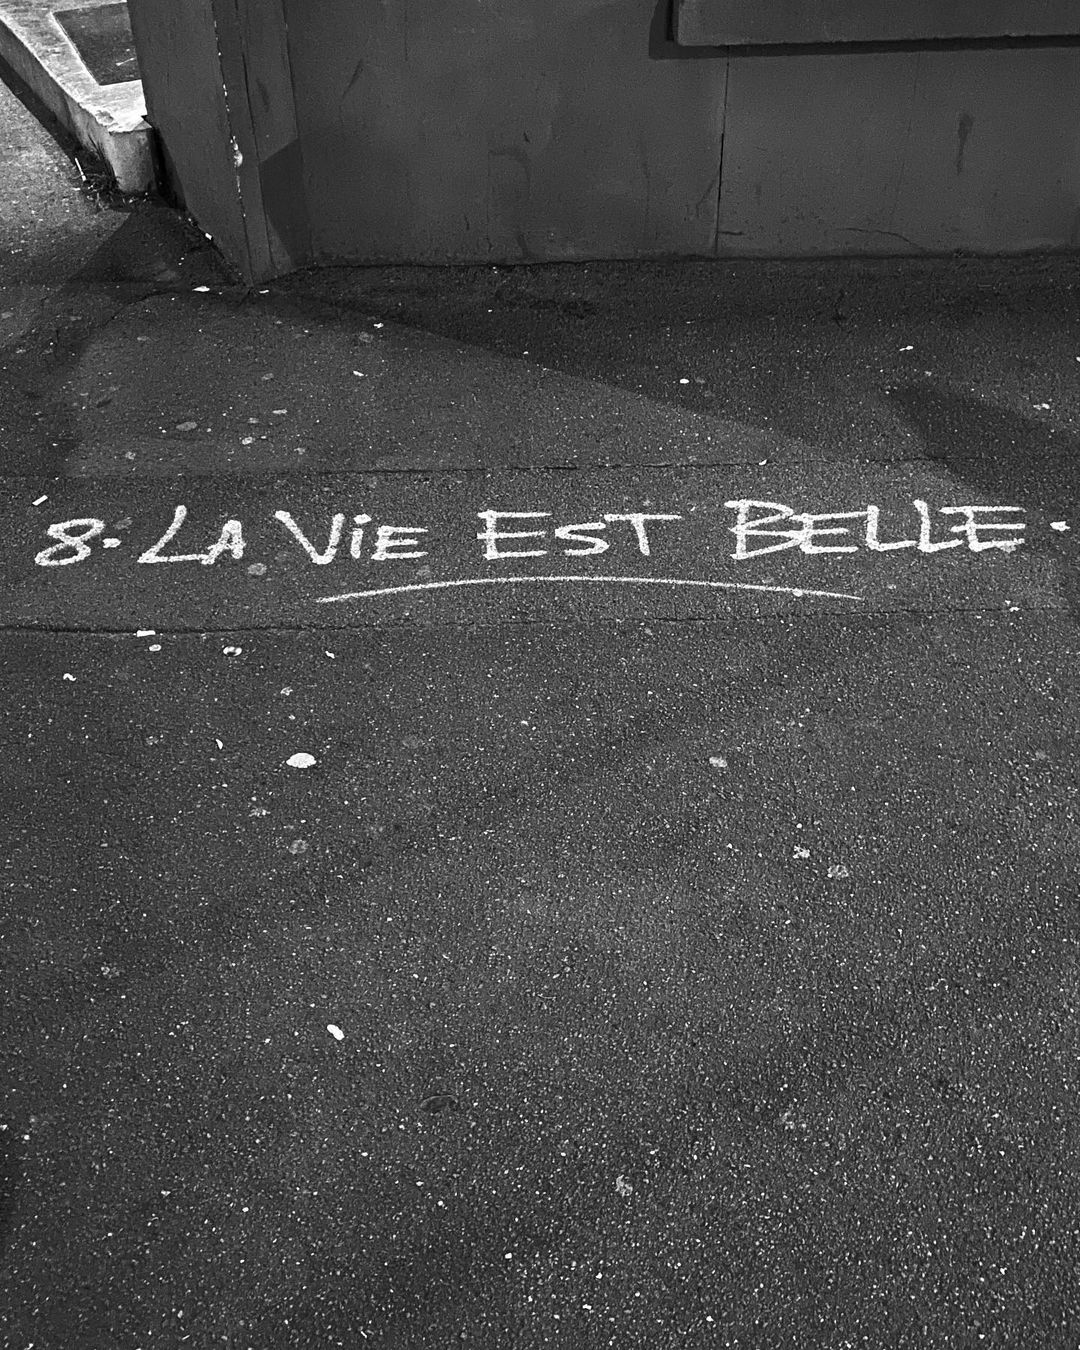 8. LA ViE EST BELLE.